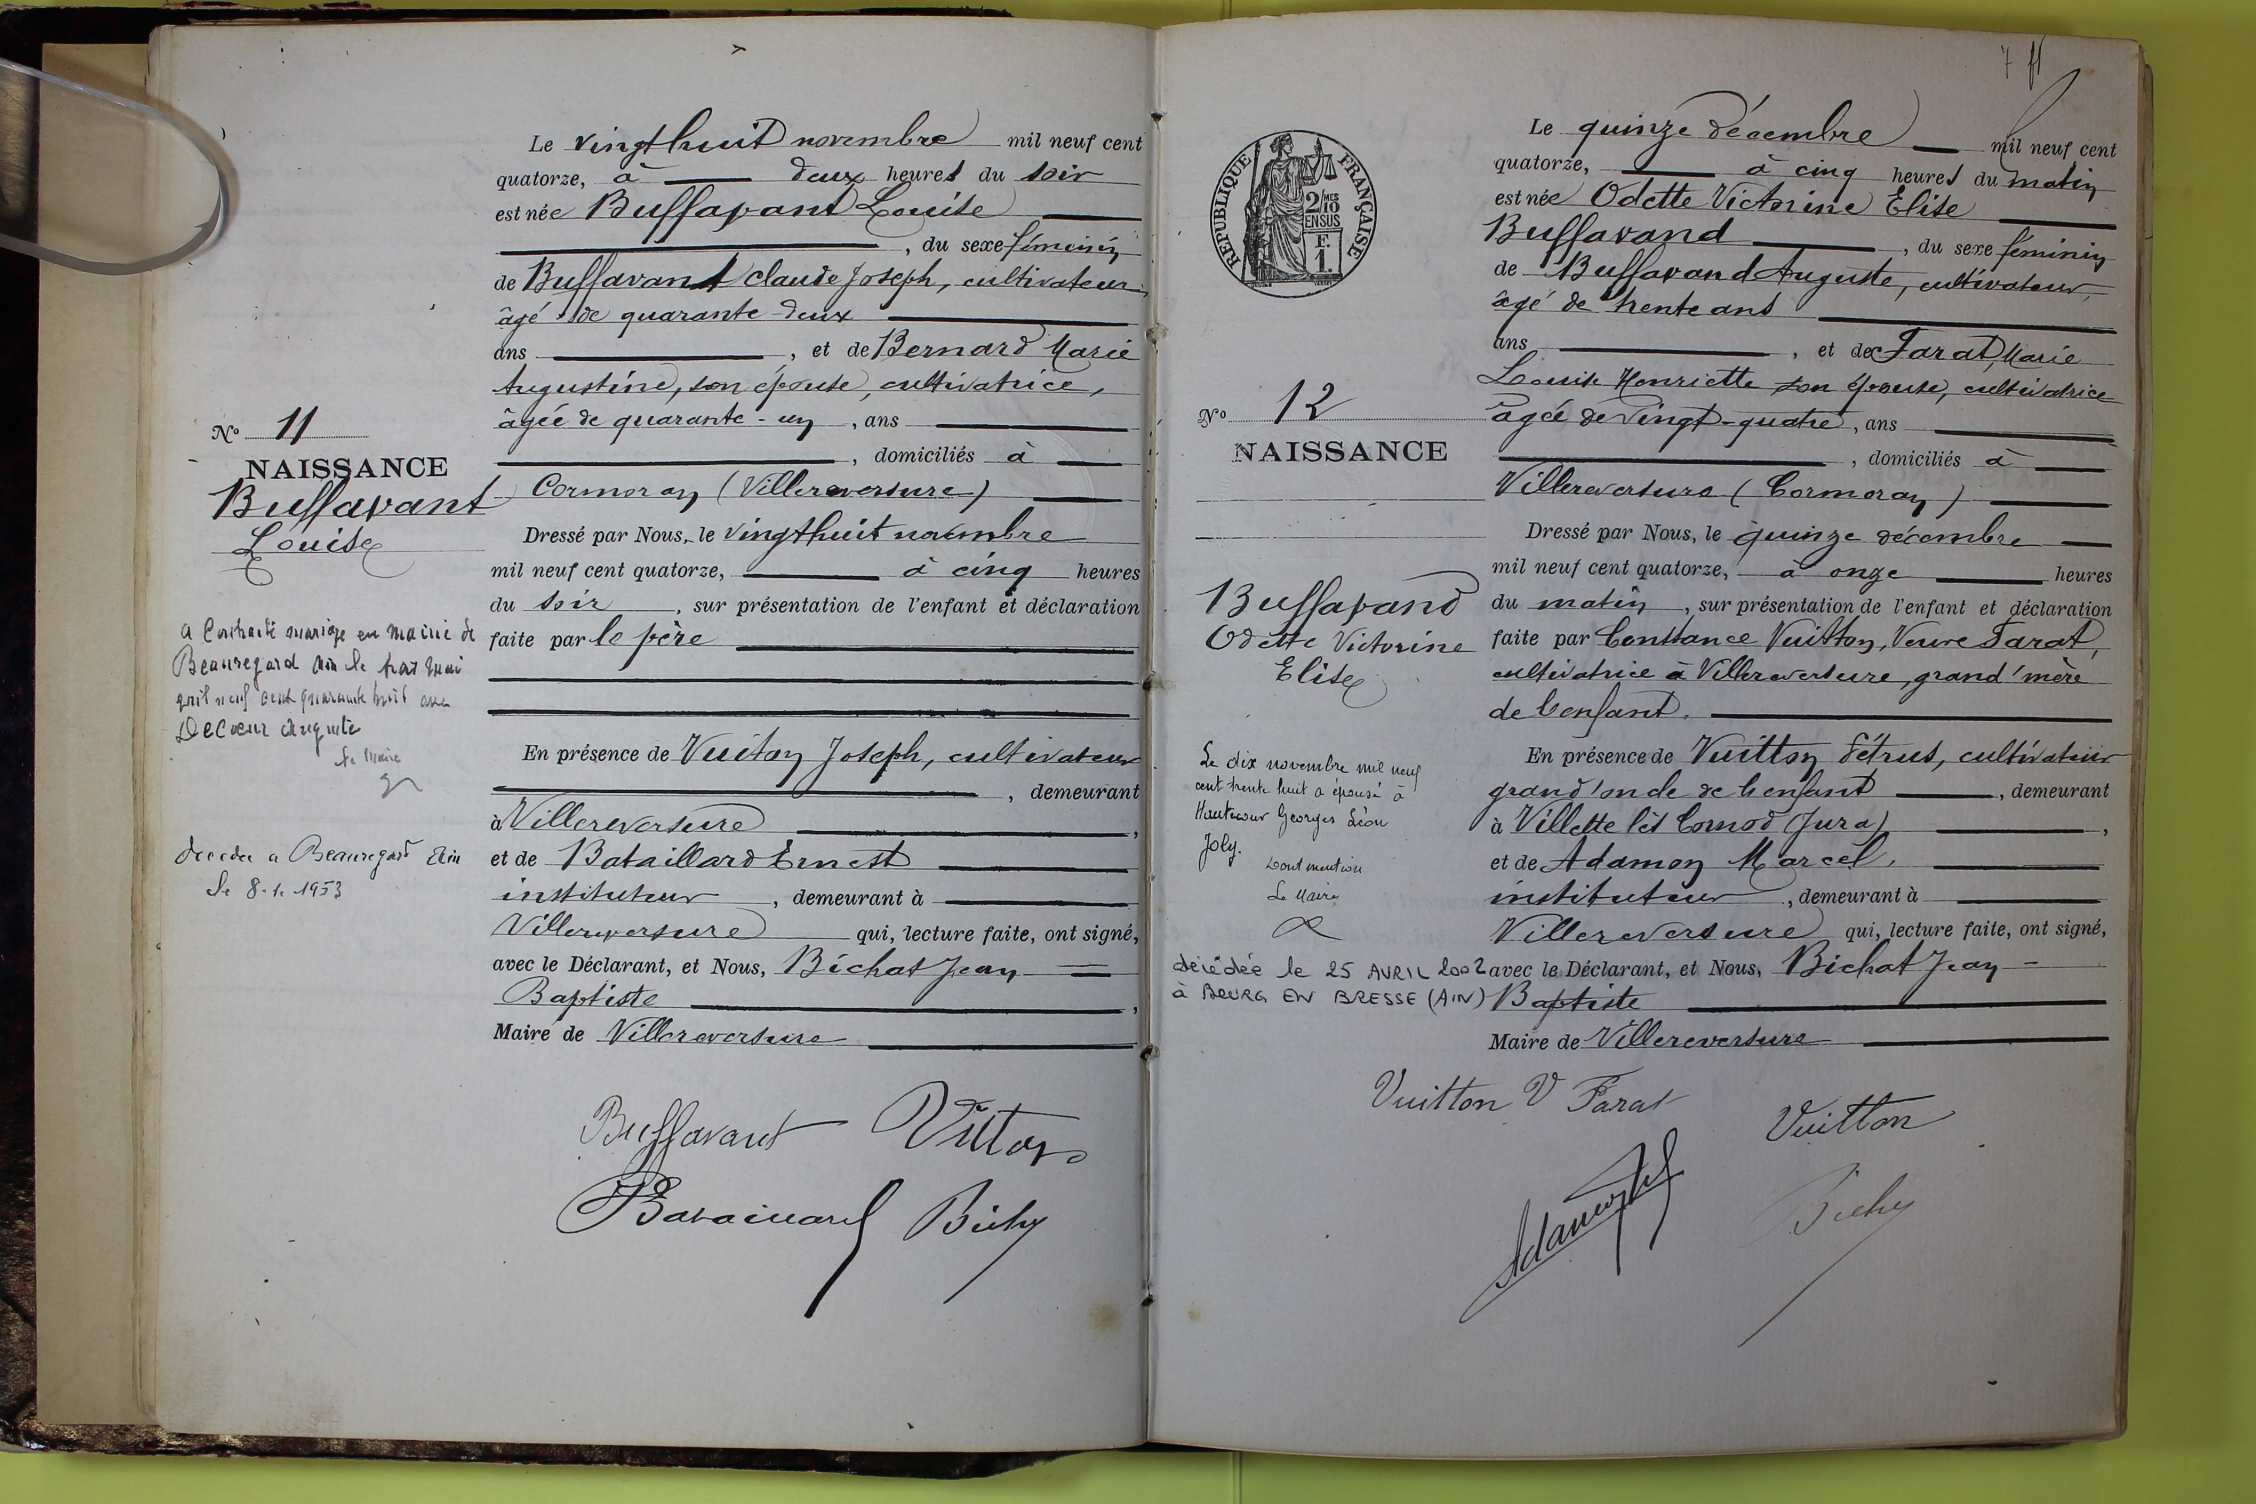 Le vingt huit novembre mil neuf cent
quatorze, à deux heures du soir
est née Buffavant Louise
, du sexe féminin
de Buffavant Claude Joseph, cultivateur,
âgé de quarante-deux
ans , et de Bernard Marie
Augustine, son épouse, cultivatrice,
âgée de quarante-un , ans
, domiciliés à
Cormoray (Villereversure)
Dressé par Nous, le vingt huit novembre
mil neuf cent quatorze, à cinq heures
du soir , sur présentation de l'enfant et déclaration
faite par le père
En présence de Vuiton Joseph, cultivateur
, demeurant
à Villereversure ,
et de Bataillard Ernest
instituteur , demeurant à
Villereversure qui, lecture faite, ont signé,
avec le Déclarant, et Nous, Bichat Jean
Baptiste ,
Maire de Villereversure
No 11
NAISSANCE
Buffavant
Louise
a contracté mariage en mairie de
Beauregard Ain le trois mai
mil neuf cent quarante huit avec
Decoeur Auguste
Le Maire
décédée a Beauregard Ain
le 8.1.1953
Buffavant Vuiton
Bataillard Bichat
7
Le quinze décembre mil neuf cent
quatorze, à cinq heures du matin
est née Odette Victorine Elise
Buffavand , du sexe féminin
de Buffavand Auguste, cultivateur,
âgé de trente ans
ans , et de Farat, Marie
Louise Henriette son épouse, cultivatrice
âgée de vingt-quatre , ans
, domiciliés à
Villereversure (Cormoray)
Dressé par Nous, le quinze décembre
mil neuf cent quatorze, à onze heures
du matin , sur présentation de l'enfant et déclaration
faite par Constance Vuitton, Veuve Farat,
cultivatrice à Villereversure, grand'mère
de l'enfant.
En présence de Vuitton Pétrus, cultivateur
grand'oncle de l'enfant , demeurant
à Villette lès Cornod (Jura) ,
et de Adamon Marcel,
instituteur , demeurant à
Villereversure qui, lecture faite, ont signé,
avec le Déclarant, et Nous, Bichat Jean
Baptiste
Maire de Villereversure
RÉPUBLIQUE FRANÇAISE
2/MES
10
EN SUS
F.
1.
No 12
NAISSANCE
Buffavand
Odette Victorine
Elise
Le dix novembre mil neuf
cent trente huit a épousé à
Hautecour Georges Léon
Joly.
Dont mention
Le Maire
décédée le 25 AVRIL 2002
à BOURG EN BRESSE (AIN)
Vuitton V Farat
Vuitton
Adamon
Bichat